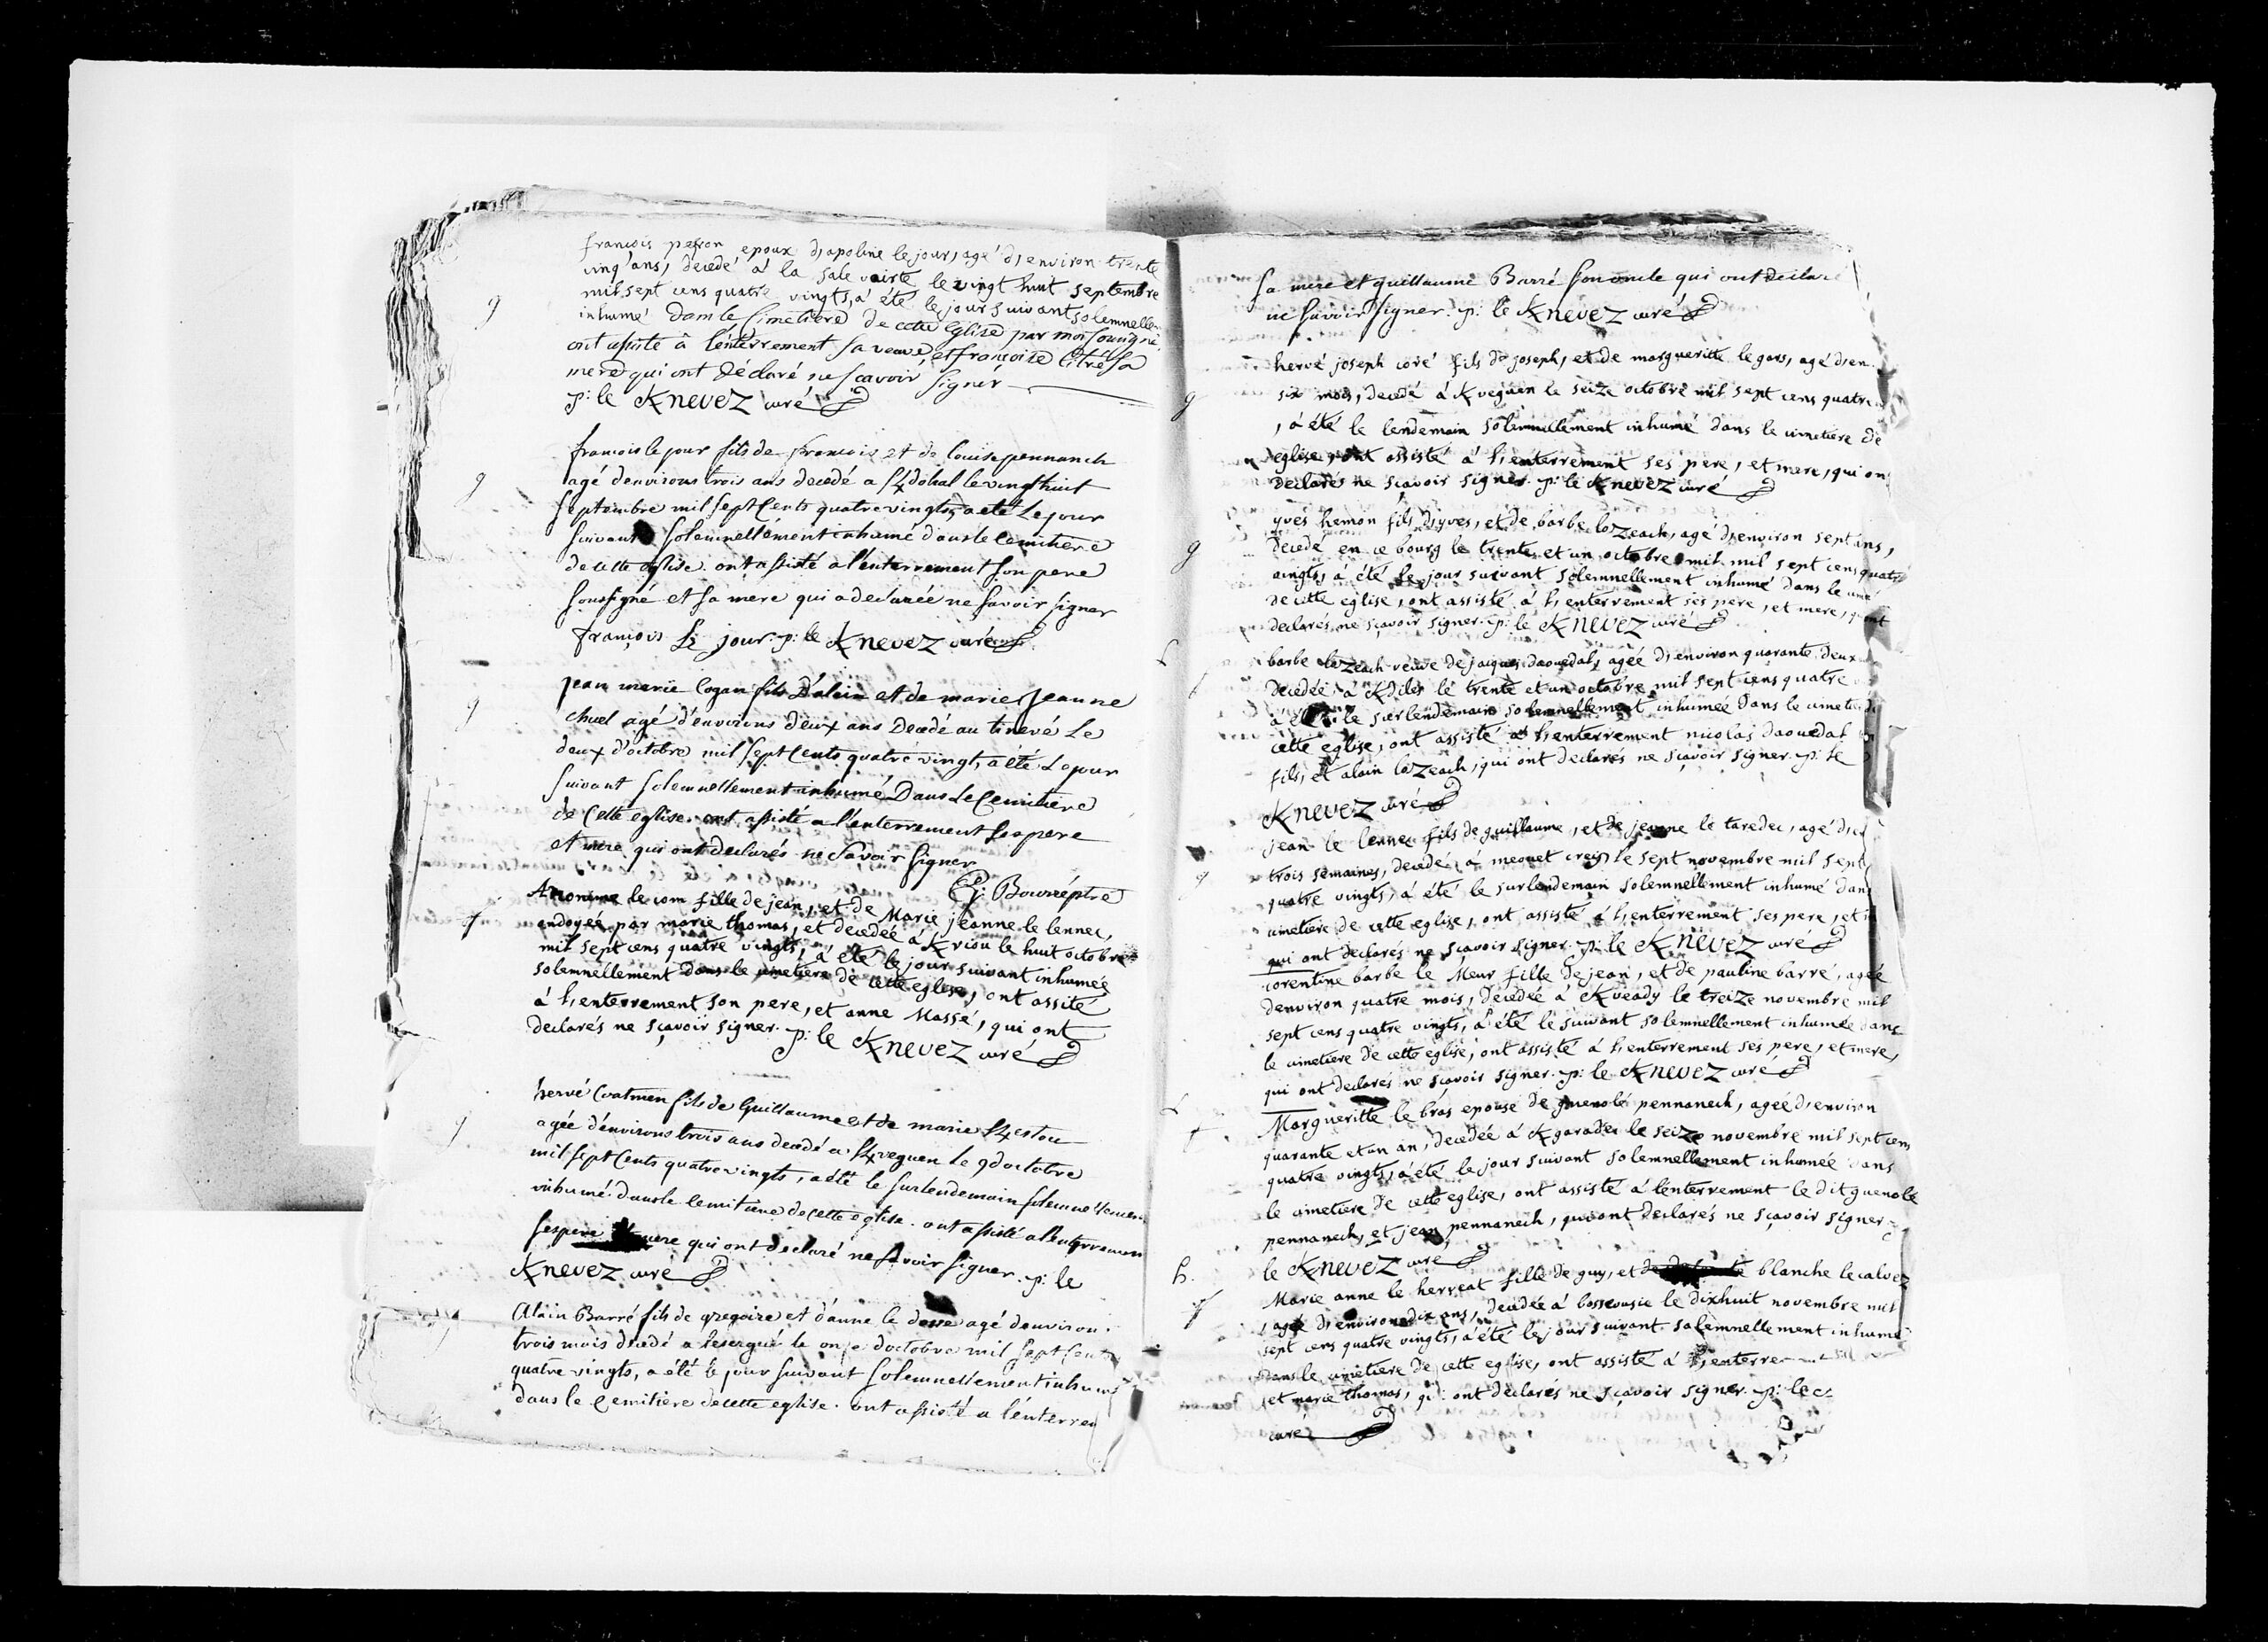 françois peron epoux d, apoline le jour, agé d, environ trente
cinq ans, decedé à la sale vairte le vingt huit septembre
mil sept cens quatre vingts, à été le jour suivant solemnellem
inhumé dans le Cimetiere de cette Eglise par moi soussigné
g
ont assisté à l'enterrement sa veuve, et françoise Citré sa
mere qui ont déclaré ne sçavoir signér
p: le Knevez curé
françois le jour fils de françois et de Louise pennanech
agé d'environs trois ans decedé a K dohal le vingt huit
g
septembre mil sept Cents quatre vingts, a eté Le jour
suivant solemnellement inhumé dans le cemitiere
de cette eglise. ont assisté a l'enterrement son pere
soussigné et sa mere qui a declarée ne savoir signer
françois Le jour. p: le Knevez curé
jean marie Cogan fils D'alain et de marie Jeanne
g
chuel agé d'environs deux ans Decedé au tinevé Le
deux d'octobre mil sept Cents quatre vingt, a été Le jour
suivant solemnellement inhumé Dans Le Cemitiere
de Cette eglise. ont assisté a l'enterrement Ses pere
et mere qui ont declarés ne Savoir signer
G: Bourré ptre
Anonime le com fille de jean, et de Marie jeanne le lennec,
f
ondoyeé par marie thomas, et decedeé à K riou le huit octobre
mil sept cens quatre vingts, à été le jour suivant inhumeé
solemnellement dans le cimetiere de cette eglise, ont assité
à l, enterrement son pere, et anne Massé, qui ont
declarés ne sçavoir signer. p: le Knevez curé
hervé Coatmen fils de Guillaume et de marie K estou
g
agée d'environs trois ans decedé a K veguen Le 9 d'octobre
mil sept Cents quatre vingts, a été le surlendemain solemnellemen
inhumé dans le cemitiere de cette eglise. ont assisté a l'enterremen
ses pere mere qui ont declaré ne savoir signer. p: le
Knevez curé
Alain Barré fils de gregoire et d'anne le agé d'environ
g
trois mois decedé a lesergué le onze d'octobre mil sept Cents
quatre vingts, a été le jour suivant solemnellement inhumé
dans le Cemitiere de cette eglise. ont assisté a l'enterrem
sa mere et guillaume Barré son oncle qui ont declaré
ne savoir signer. p: le Knevez curé
hervé joseph coré fils de joseph, et de margueritte le gars, agé d, en
g
six mois, decedé à K veguen le seize octobre mil sept cens quatre
, à été le lendemain solemnellement inhumé dans le cimetiere de
eglise, ont assisté à l, enterrement ses pere, et mere, qui on
declarés ne sçavoir signer. p: le Knevez curé
yves hemon fils d, yves, et de barbe lozeach, agé d, environ sept ans,
g
decedé en ce bourg le trente et un octobre mil mil sept cens quatre
vingts, à été le jour suivant solemnellement inhumé dans le cime
de cette eglise, ont assisté à l, enterrement ses pere, et mere, qui ont
declarés ne sçavoir signer. p: le Knevez curé
barbe lozeach veuve de jacques daouedal, ageé d, environ quarante deux
decedeé à K diles le trente et un octobre mil sept cens quatre
à été le surlendemain solemnellement inhumeé dans le cimetiere
cette eglise, ont assisté à l, enterrement nicolas daouedal
fils, et alain lozeach, qui ont declarés ne sçavoir signer. p: le
Knevez curé
jean le lennec fils de guillaume, et de jeanne le taredec, agé d, en
g
trois semaines, decedé à meouet creis le sept novembre mil sept
quatre vingts, à été le surlendemain solemnellement inhumé dans
cimetiere de cette eglise, ont assisté à l, enterrement ses pere, et
qui ont declarés ne sçavoir signer. p: le Knevez curé
corentine barbe le Meur fille de jean, et de pauline barré, ageé
denviron quatre mois, decedeé à K veady le treize novembre mil
sept cens quatre vingts, à été le suivant solemnellement inhumeé dans
le cimetiere de cette eglise, ont assisté à l, enterrement ses pere, et mere,
qui ont declarés ne sçavoir signer. p: le Knevez curé
Margueritte le bras epouse de guenolé pennanech, ageé d, environ
quarante et un an, decedeé à K garadec le seize novembre mil sept cens
quatre vingts, à été le jour suivant solemnellement inhumeé dans
le cimetiere de cette eglise, ont assisté à l'enterrement le dit guenolé
pennanech, et jean pennanech, qui ont declarés ne sçavoir signer
le Knevez curé
h.
Marie anne le herreat fille de guy, et blanche le calvez
f
, ageé d, environ dix ans, decedeé à bossousie le dixhuit novembre mil
sept cens quatre vingts, à été le jour suivant solemnellement inhumé
dans le cimetiere de cette eglise, ont assisté à l, enterre
et marie thomas, qui ont declarés ne sçavoir signer. p: le
curé